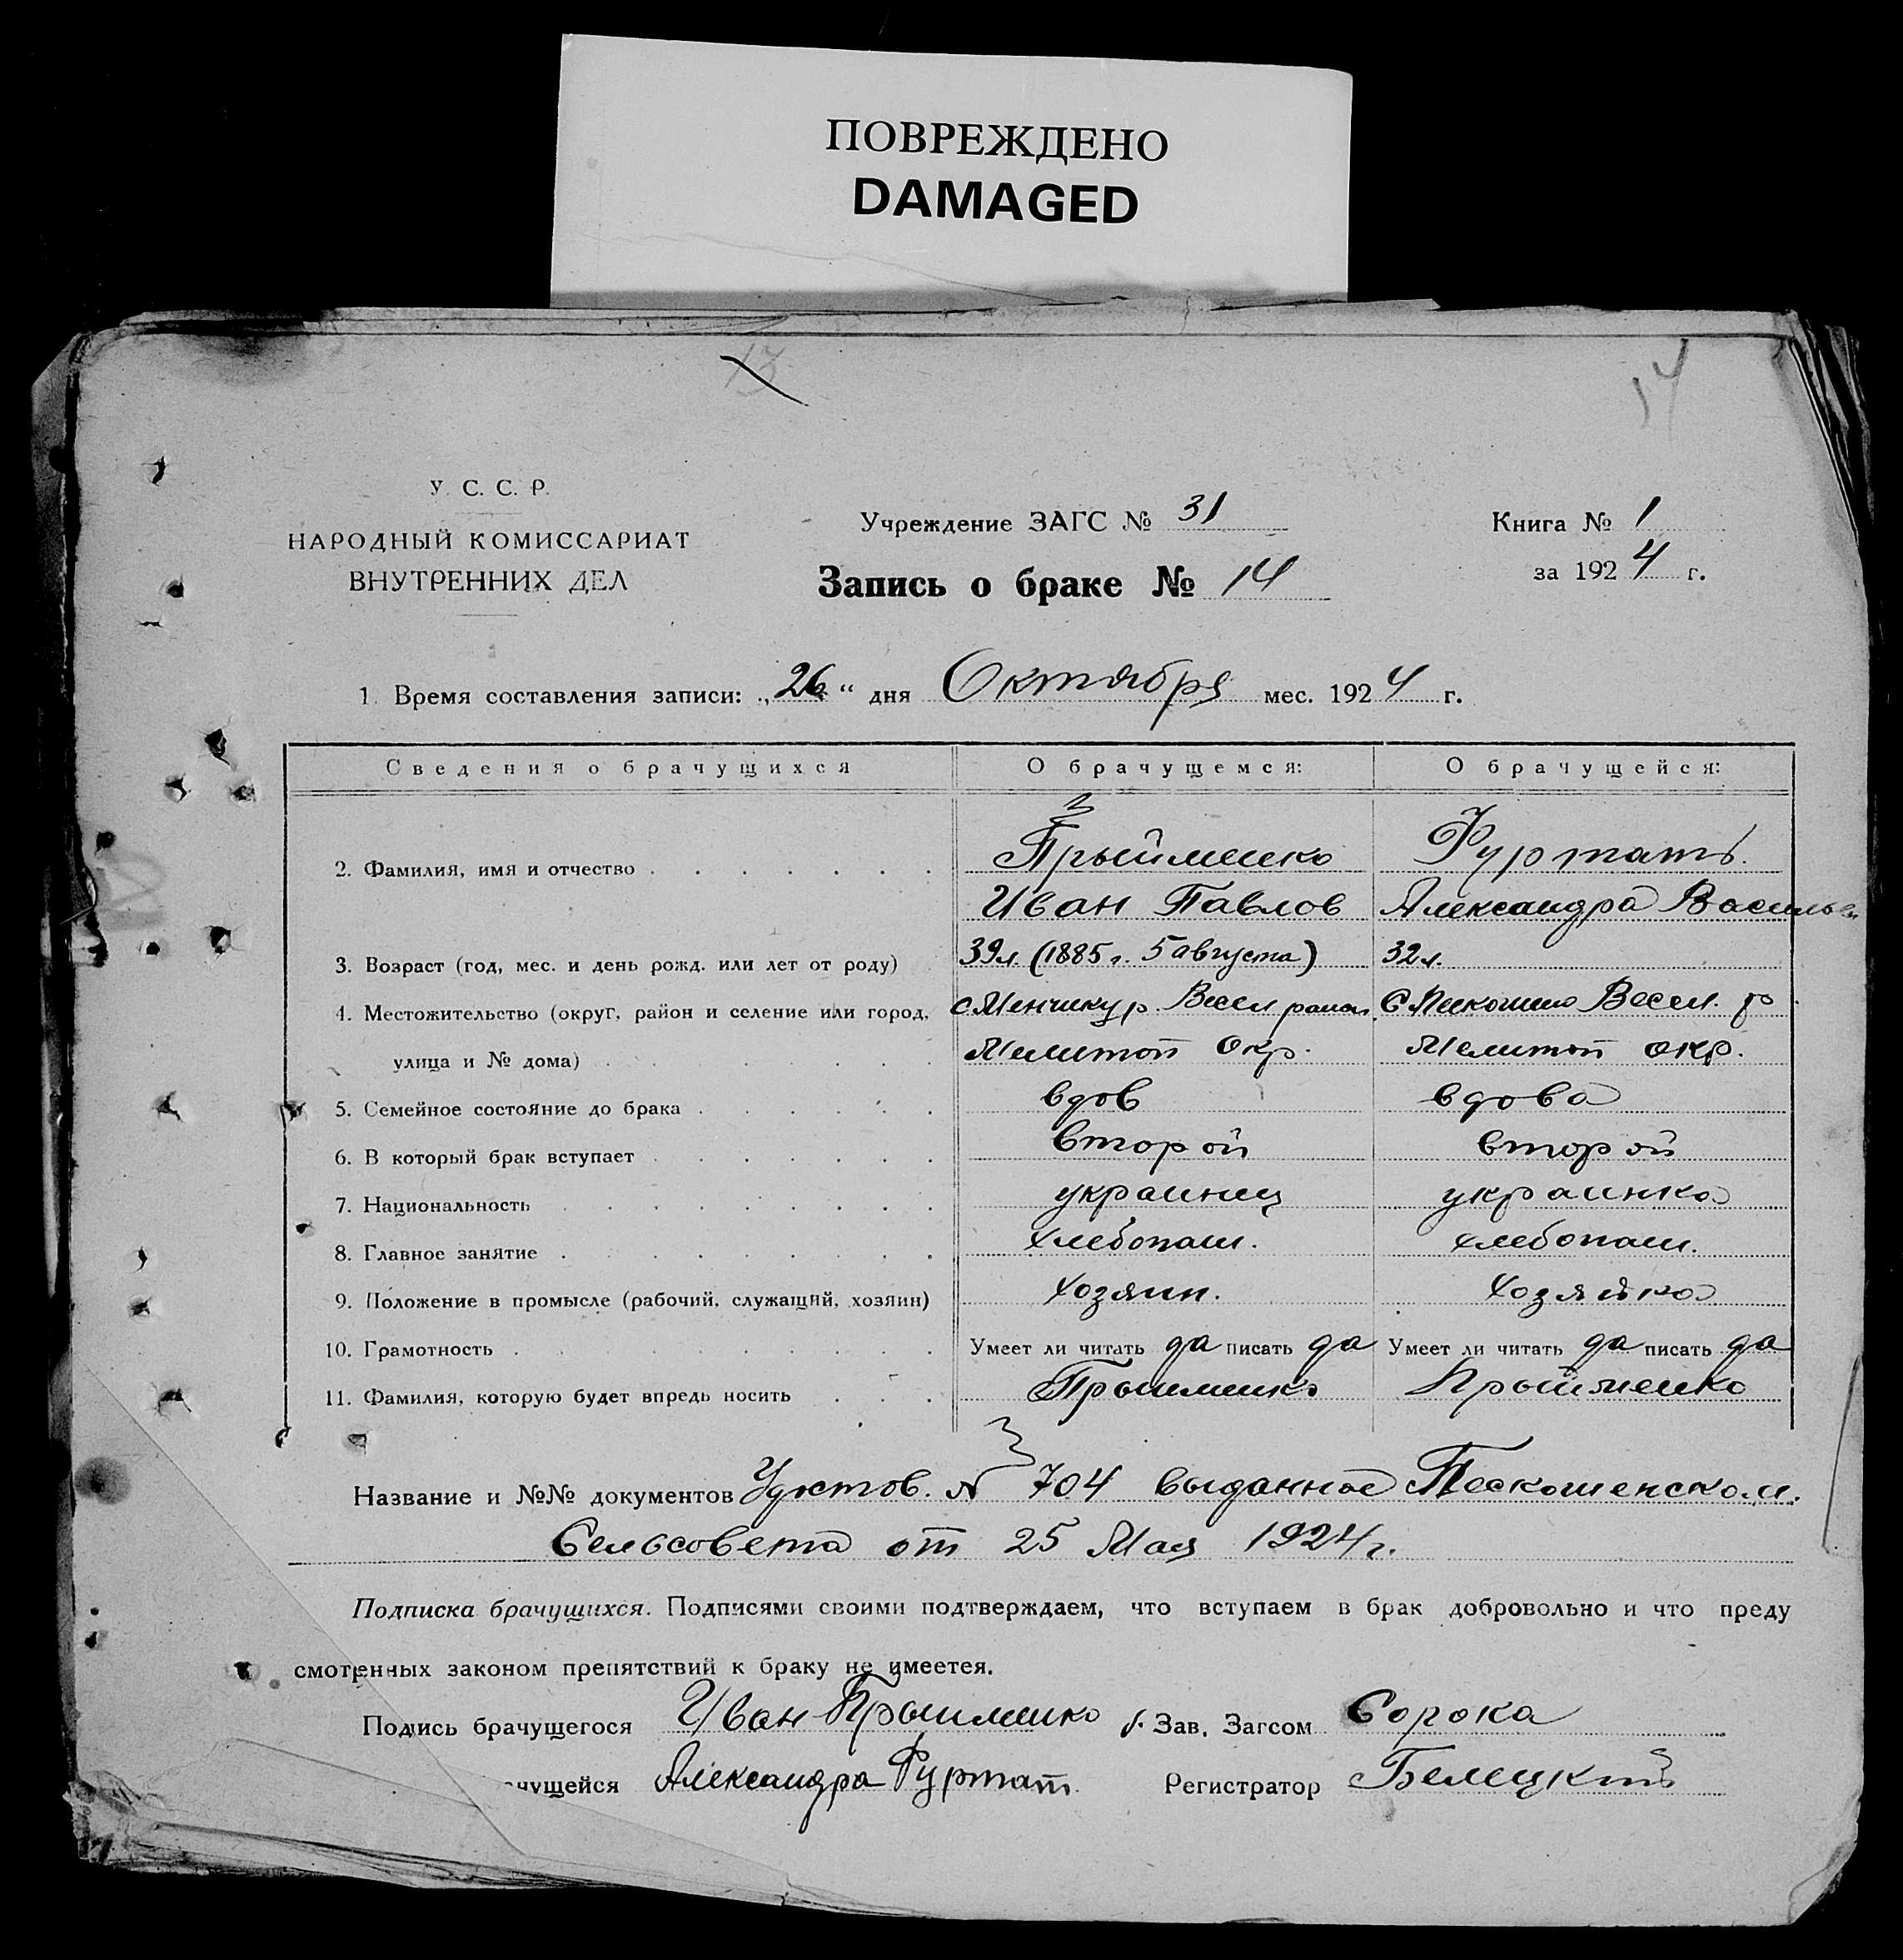 ПОВРЕЖДЕНО
DAMAGED
13
14
У. С. С. Р.
НАРОДНЫЙ КОМИССАРИАТ
ВНУТРЕННИХ ДЕЛ
Учреждение ЗАГС № 31
Запись о браке № 14
Книга № 1
за 1924 г.
1. Время составления записи: „26“ дня Октября мес. 1924 г.
Сведения о брачущихся О брачущемся: О брачущейся:
2. Фамилия, имя и отчество Прыйменко Фуртатъ.
Иван Павлов Александра Васильев
3. Возраст (год, мес. и день рожд. или лет от роду) 39л. (1885 г. 5 августа) 32л.
4. Местожительство (округ, район и селение или город, с Менчикур. Весел район. С Весел. р
улица и № дома) Мелитоп Окр. Мелитоп окр.
5. Семейное состояние до брака вдов вдова
6. В который брак вступает второй второй
7. Национальность украинец украинка
8. Главное занятие хлебопаш. хлебопаш.
9. Положение в промысле (рабочий, служащий, хозяин) хозяин. хозяйка
10. Грамотность Умеет ли читать да писать да Умеет ли читать да писать да
11. Фамилия, которую будет впредь носить Прыйменко Прыйменко
Название и №№ документов Удостов. № 704 выданное Пескошенском.
Сельсовета от 25 Мая 1924г.
Подписка брачущихся. Подписями своими подтверждаем, что вступаем в брак добровольно и что преду
смотренных законом препятствий к браку не имеетея.
Подпись брачущегося Иван Прыйменко Зав. Загсом Сорока
чущейся Александра Фуртат Регистратор Белецкий